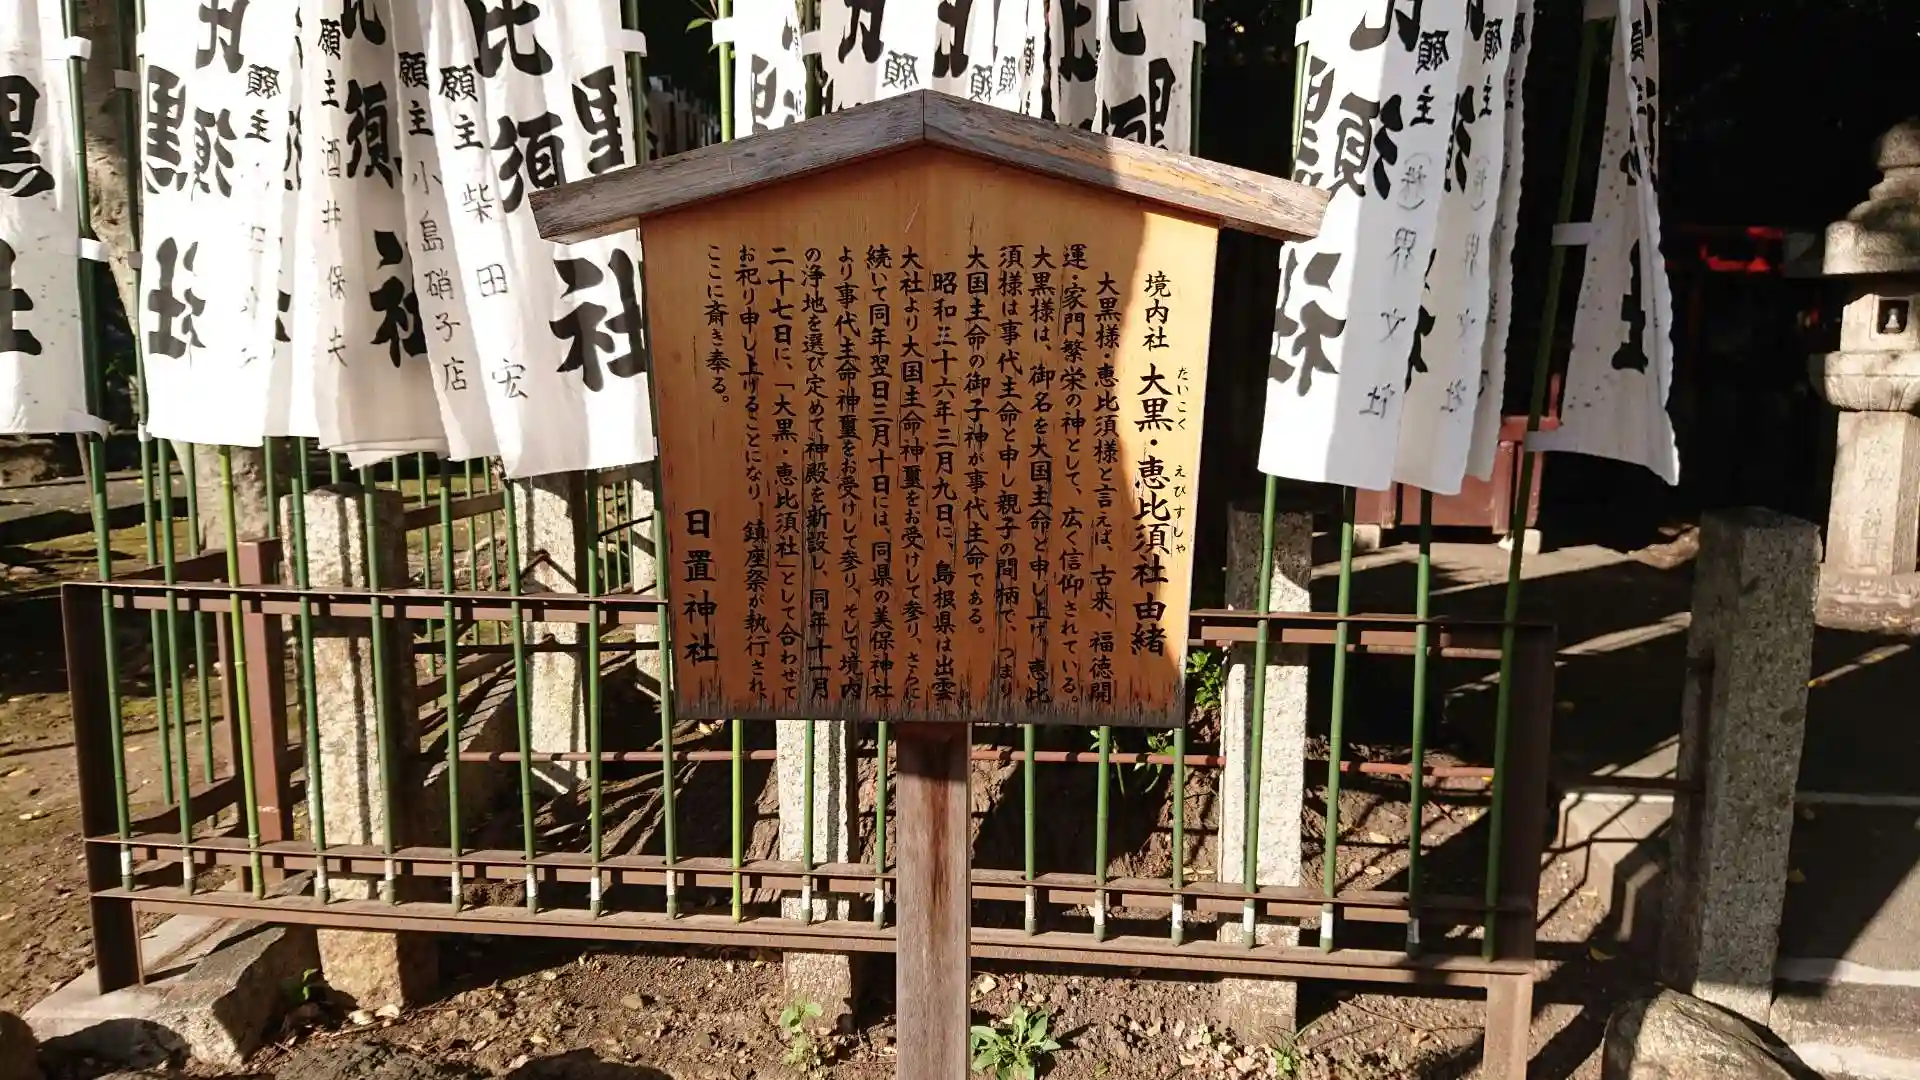 境内社 大黒・恵比須社由緒
だいこく えびすしゃ
大黒様・恵比須様と言えば、古来、福徳開
運・家門繁栄の神として、広く信仰されている。
大黒様は、御名を大国主命と申し上げ、恵比
須様は事代主命と申し親子の間柄で、つまり
大国主命の御子神が事代主命である。
昭和三十六年三月九日に、島根県は出雲
大社より大国主命神璽をお受けして参り、さらに
続いて同年翌日三月十日には、同県の美保神社
より事代主命神璽をお受けして参り、そして境内
の浄地を選び定めて神殿を新設し、同年十一月
二十七日に、「大黒・恵比須社」として合わせて
お祀り申し上げることになり、鎮座祭が執行され、
ここに斎き奉る。
日置神社
願主
比須社
願主 柴田 宏
願主 小島硝子店
須社
願主 酒井保夫
願主
比須社
黒社
黒社
願
願
須
比須社
願主
願主
願主
社